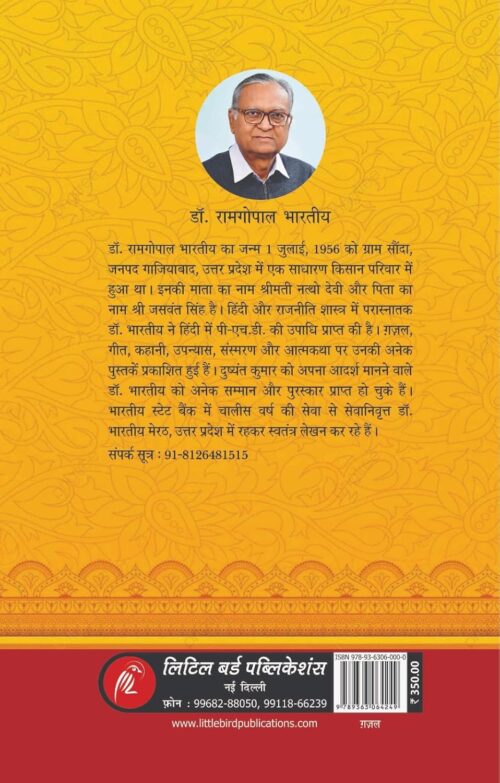 डॉ. रामगोपाल भारतीय
डॉ. रामगोपाल भारतीय का जन्म 1 जुलाई, 1956 को ग्राम सौंदा,
जनपद गाजियाबाद, उत्तर प्रदेश में एक साधारण किसान परिवार में
हुआ था। इनकी माता का नाम श्रीमती नत्थो देवी और पिता का
नाम श्री जसवंत सिंह है। हिंदी और राजनीति शास्त्र में परास्नातक
डॉ. भारतीय ने हिंदी में पी-एच.डी. की उपाधि प्राप्त की है। ग़ज़ल,
गीत, कहानी, उपन्यास, संस्मरण और आत्मकथा पर उनकी अनेक
पुस्तकें प्रकाशित हुई हैं। दुष्यंत कुमार को अपना आदर्श मानने वाले
डॉ. भारतीय को अनेक सम्मान और पुरस्कार प्राप्त हो चुके हैं।
भारतीय स्टेट बैंक में चालीस वर्ष की सेवा से सेवानिवृत्त डॉ.
भारतीय मेरठ, उत्तर प्रदेश में रहकर स्वतंत्र लेखन कर रहे हैं।
संपर्क सूत्र : 91-8126481515
लिटिल बर्ड पब्लिकेशंस
नई दिल्ली
फ़ोन : 99682-88050, 99118-66239
www.littlebirdpublications.com
ISBN 978-93-6306-000-0
9789363064249
₹ 350.00
ग़ज़ल